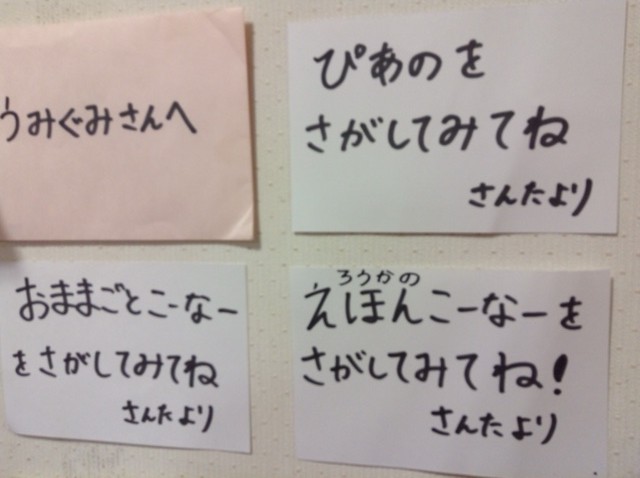 うみぐみさんへ
ぴあのを
さがしてみてね
さんたより
おままごとこーなー
をさがしてみてね
さんたより
ろうかの
えほんこーなーを
さがしてみてね!
さんたより